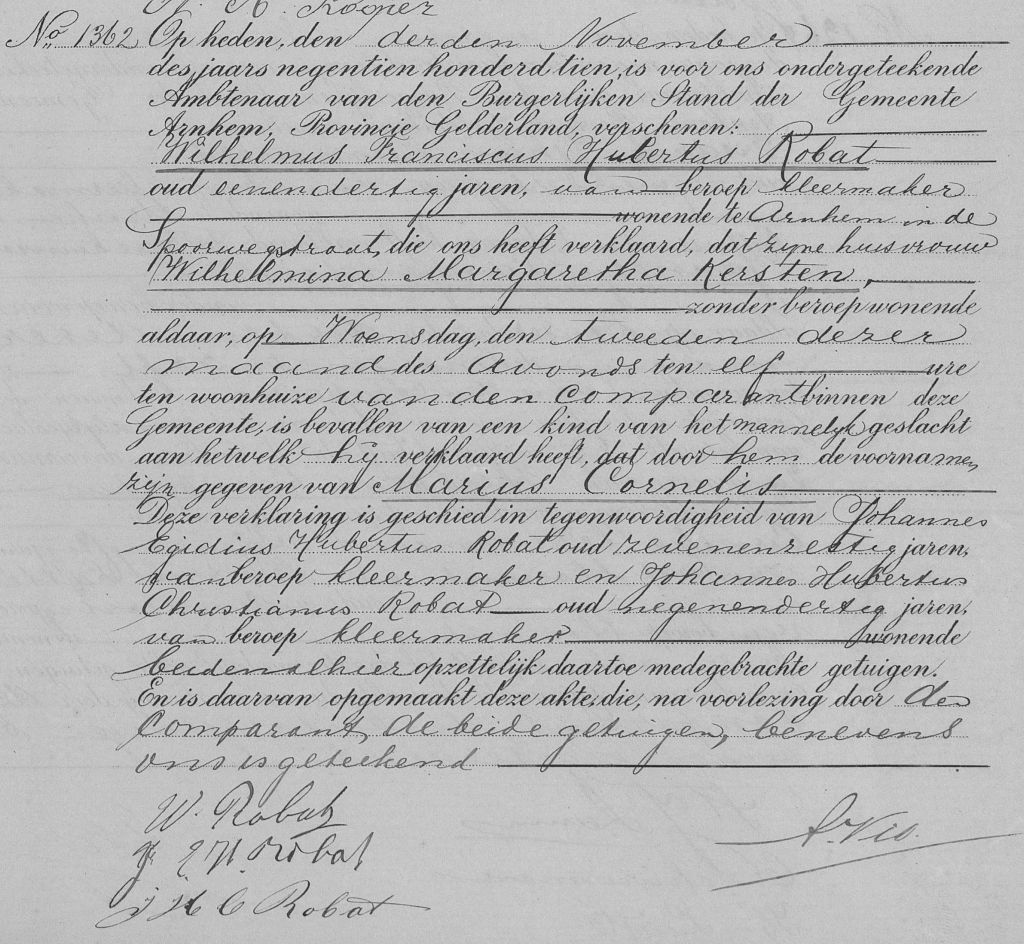 A. Kooper
No. 1362 Op heden, den derden November
des jaars negentien honderd tien, is voor ons ondergeteekende
Ambtenaar van den Burgerlijken Stand der Gemeente
Arnhem, Provincie Gelderland, verschenen:
Wilhelmus Franciscus Hubertus Robat
oud eenendertig jaren, van beroep kleermaker
wonende te Arnhem in de
Spoorwegstraat, die ons heeft verklaard, dat zyne huisvrouw
Wilhelmina Margaretha Kersten,
zonder beroep wonende
aldaar, op Woensdag, den tweeden dezer
maand des Avonds ten elf ure
ten woonhuize van den Comparant binnen deze
Gemeente, is bevallen van een kind van het mannelyk geslacht
aan hetwelk hij verklaard heeft, dat door hem de voornamen
zyn gegeven van Marius Cornelis
Deze verklaring is geschied in tegenwoordigheid van Johannes
Egidius Hubertus Robat oud zevenenzestig jaren,
van beroep kleermaker en Johannes Hubertus
Christianus Robat oud negenendertig jaren,
van beroep kleermaker wonende
beiden alhier opzettelijk daartoe medegebrachte getuigen.
En is daarvan opgemaakt deze akte, die, na voorlezing door den
Comparant, de beide getuigen, benevens
ons is geteekend
W. Robat
J. E. H. Robat
J H C Robat